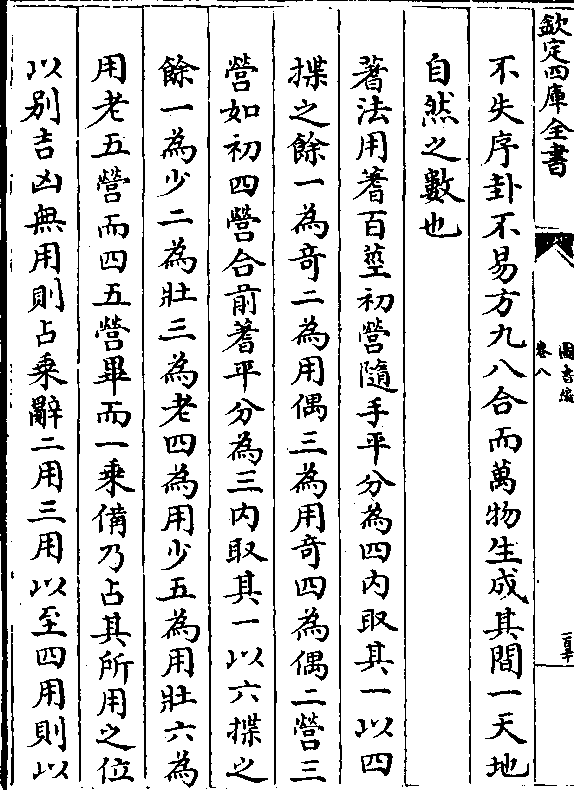 欽定四庫全書
圖書編
卷八
不失序卦不易方九八合而萬物生成其間一天地
自然之數也
蓍法用蓍百莖初營隨手平分為四内取其一以四
揲之餘一為奇二為用偶三為用奇四為偶二營三
營如初四營合前蓍平分為三内取其一以六揲之
餘一為少二為壯三為老四為用少五為用壯六為
用老五營而四五營畢而一乘備乃占其所用之位
以别吉凶無用則占乘辭二用三用以至四用則以